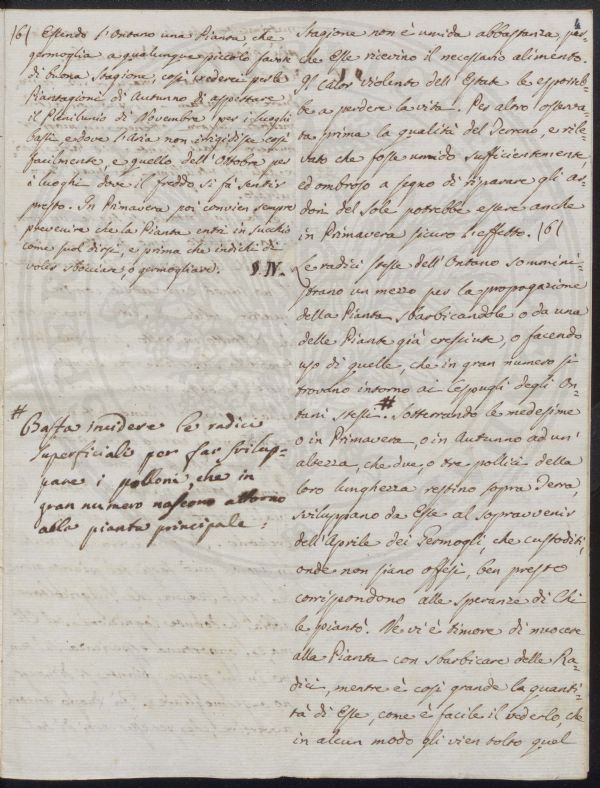 4
(6) Essendo l'Ontano una Pianta, che
germoglia a qualunque piccolo favore
di buona Stagione, così crederei per le
Piantagioni di Autunno di aspettare
il Plenilunio di Novembre per i luoghi
bassi, e dove l'aria non irrigidisce così
facilmente, e quello dell'Ottobre per
i luoghi dove il freddo si fà sentir
presto. In Primavera poi convien sempre
prevenire che la Pianta entri in succhio
come suol dirsi, e prima che indichi di
voler sbocciare, o germogliare.
# Basta incidere le radici
superficiali per far svilup-
pare i polloni, che in
gran numero nascono attorno
alla pianta principale.
Stagione non è umida abbastanza, per-
che Esse ricevino il necessario alimento.
Il calor violento dell'Estate le esporreb-
be a perdere la vita. Per altro osserva-
ta prima la qualità del Terreno, e rile-
vato che fosse umido sufficientemente
ed ombroso a segno di riparare gli ar-
dori del Sole potrebbe essere anche
in Primavera sicuro l'effetto. (6)
§. IV.
Le radici stesse dell'Ontano sommini-
strano un mezzo per la propagazione
della Pianta sbarbicandole o da una
delle Piante già cresciute, o facendo
uso di quelle, che in gran numero si
trovano intorno ai Cespugli degli On-
tani stessi. # Sotterrando le medesime
o in Primavera, o in Autunno ad un'
altezza, che due, o tre pollici della
loro lunghezza restino sopra Terra,
sviluppano da Esse al sopravvenir
dell'Aprile dei Germogli, che custoditi,
onde non siano offesi, ben presto
corrispondono alle speranze di Chi
le piantò. Nè vi è timore di nuocere
alla Pianta con sbarbicare delle Ra-
dici, mentre è così grande la quanti-
tà di Esse, come è facile il vederlo, che
in alcun modo gli vien tolto quel